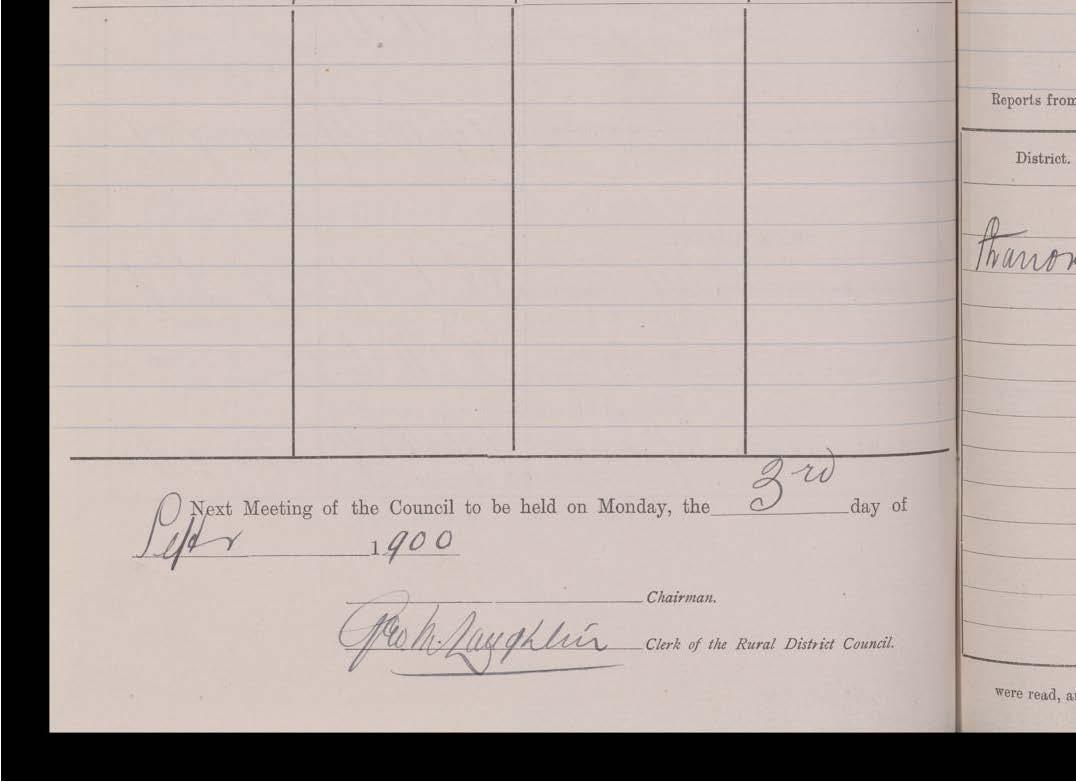 Next Meeting of the Council to be held on Monday, the 3rd day of
Septr 1900
Chairman.
Geo McLaughlin Clerk of the Rural District Council.
Reports from
District.
were read, a